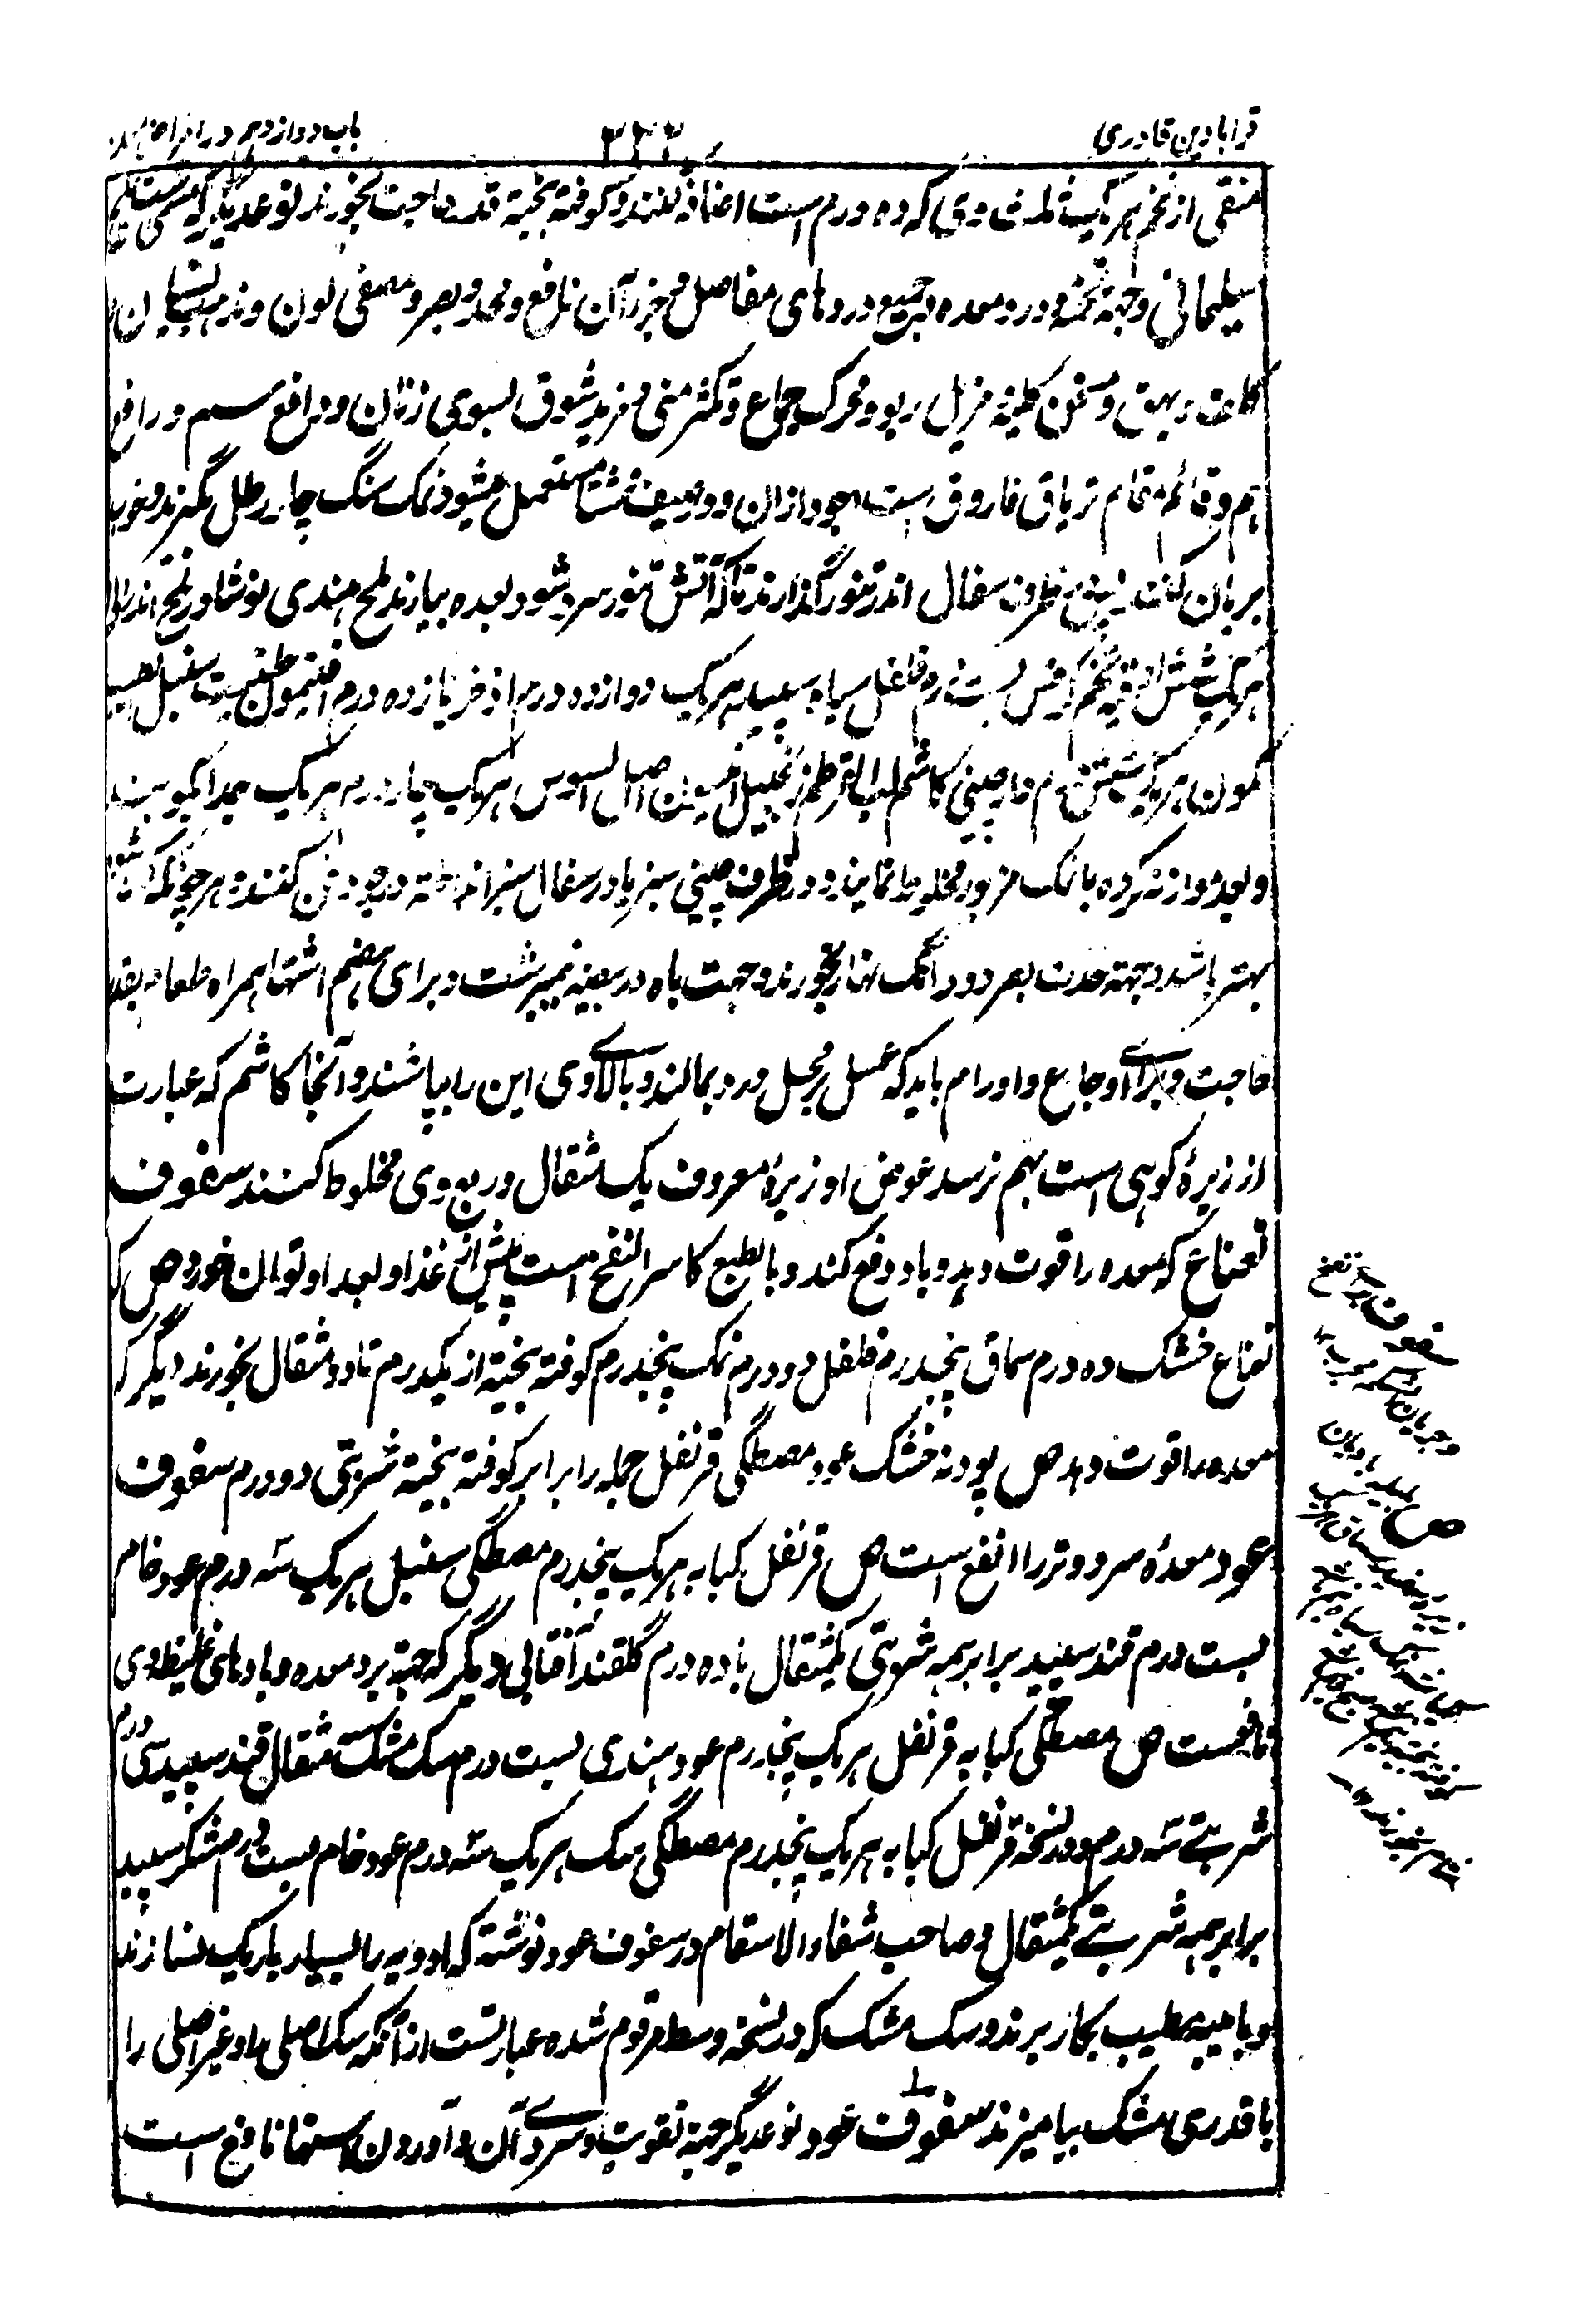 قرابادین قادری
۲۴۲
باب دوازدهم در امراض
منقی از تخم هر یک ثلث وی که ده درم است اضافه کنند و کوفته بیخته قدر حاجت بخورند نوعدیگر که مسمی است
سلیمانی و جهة تخمه و درد معده و جمیع دردهای مفاصل و جز آن نافع و محد بصر و مصفی لون و مذهب نسیان
کلف و بهق و مسخن کلیه و مزیل ربو و محرک جماع و مکثر منی و مزید شوق بسوی زنان و دافع سم و رافع
و قائم مقام تریاق فاروق است مستعمل میشود نمک سنگ چار رطل بگیرند و خوب
بریان کنند ظرف سفال اندر تنور گذارند تا که آتش تنور سرد شود بعده بیارند ملح هندی نوشادر ملح اندرانی
هر یک شش اوقیه تخم کرفس بست درم فلفل سیاه سپید هر یک دوازده درم اذخر یازده درم افتیمون حلتیت سنبل
کمون هر یک شش درم دارچینی کاشم لب القرطم زنجبیل انیسون اصل السوس هر یک چار درم هر یک جدا بکوبند
و بعد وازنه کرده با نمک مزبور مخلوط نمایند و در ظرف چینی سبز یا در سفال سبز انداخته در جو دفن کنند و هر چند کهنه شود
بهتر باشد و جهة حدت بصر دو دانگ نهار بخورند و جهت باه در بیضه نیمبرشت و برای هضم اشتها همراه طعام بقدر
حاجت و برای اوجاع و اورام باید که عسل بر محل درد بمالند و بالای وی این را بپاشند و آنجا کاشم که عبارت
از زیرهٔ کوهی است بهم نرسد عوض او زیرهٔ معروف یک مثقال و ربع وی مخلوط کنند سفوف
نعناع که معده را قوت دهد و باد دفع کند و بالطبع کاسر النفخ است پیش از غذا و بعد او توان خورد ص
نعناع خشک ده درم سماق پنجدرم فلفل دو درم نمک پنجدرم کوفته بیخته از یکدرم تا دو مثقال بخورند دیگر که
معده را قوت دهد ص پودنه خشک عود مصطگی قرنفل جمله را برابر کوفته بیخته شربتی دو درم سفوف
عود معدهٔ سرد و تر را انفع است ص قرنفل کبابه هر یک پنجدرم مصطگی سنبل هر یک سه درم عود خام
بست درم قند سپید برابر همه شربتی یکمثقال با ده درم گلقند آفتابی دیگر که جهة برد معده و بادهای غلیظ وی
نافعست ص مصطگی کبابه قرنفل هر یک پنجدرم عود هندی بست درم سک مشک سه مثقال قند سپید سی درم
شربتی سه درم و در نسخه قرنفل کبابه هر یک پنجدرم مصطگی سک هر یک سه درم عود خام بست درم شکر سپید
برابر همه شربتی یکمثقال و صاحب شفاء الاسقام در سفوف عود نوشته که ادویه را بسیار باریک نسازند
و با میبه مطیب بکار برند و سک مشک که در نسخه وسط مرقوم شده عبارتست از آنکه سک اصلی و غیر اصلی را
با قدری مشک بیامیزند سفوف عود نوعدیگر جهة تقویت و سردی آن و آوردن اشتها نافع است
سفوف
ص